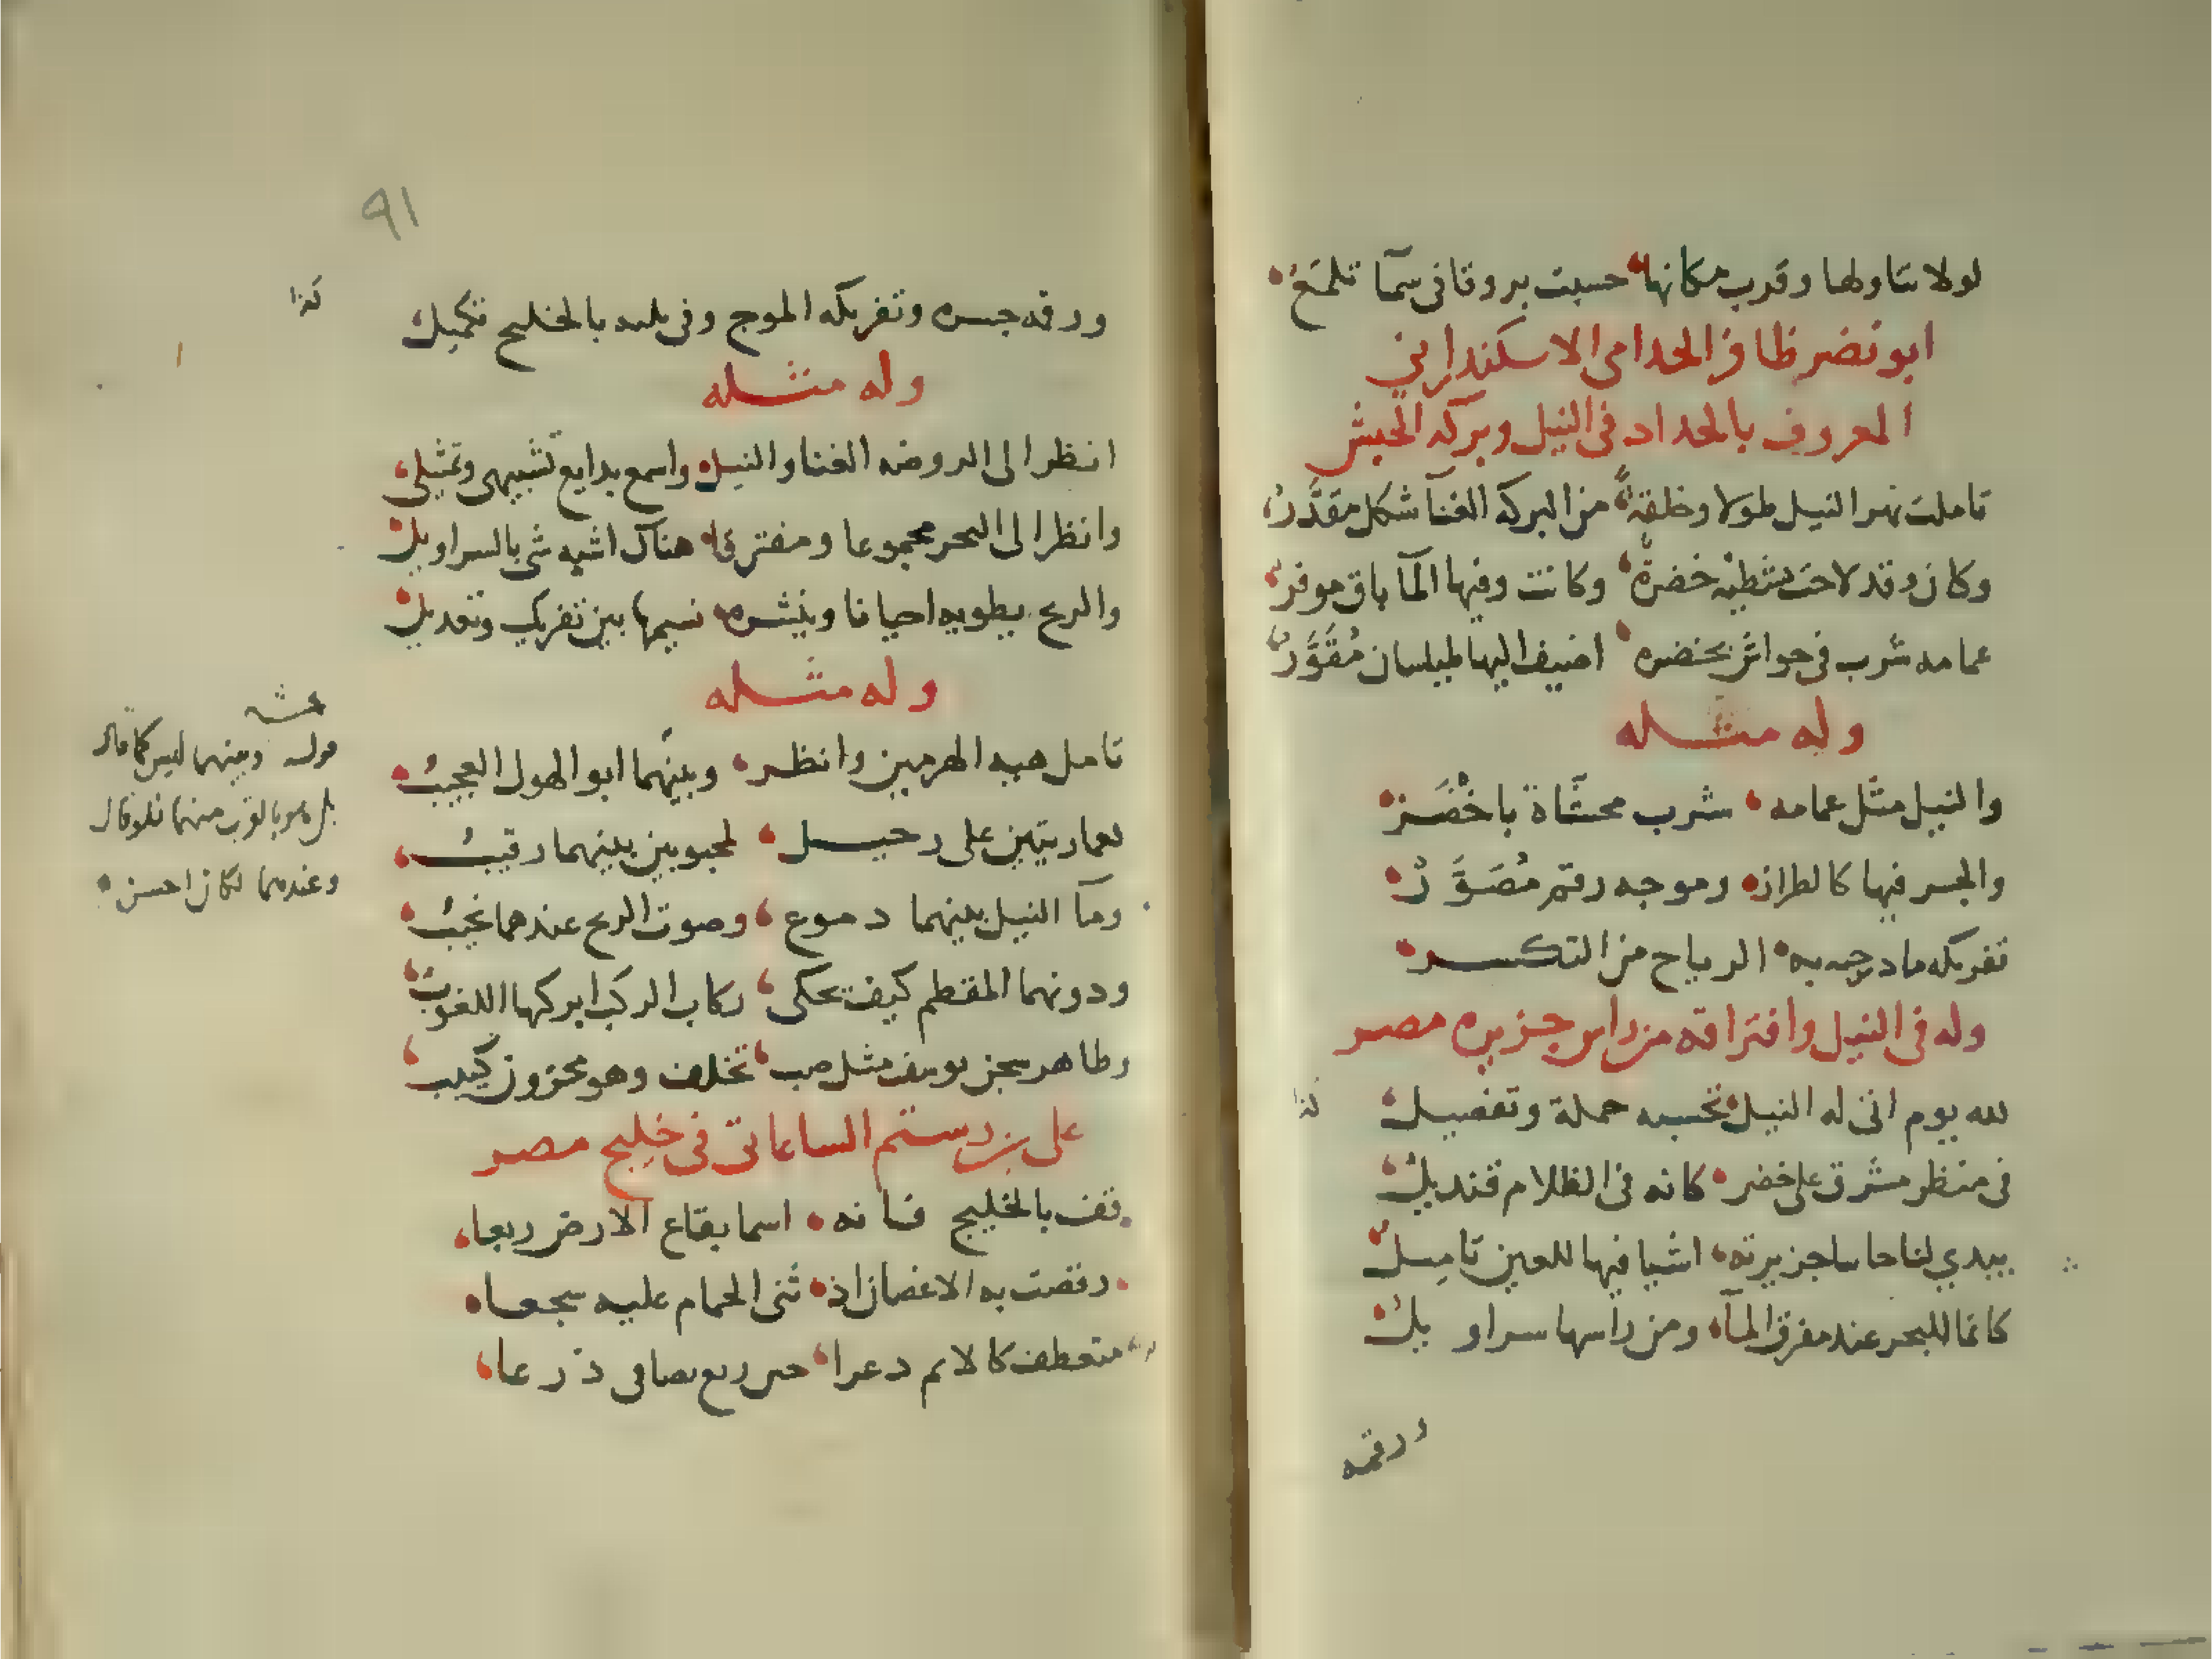 لولا تناولها وقرب مكانها حسبت بروقا في سمآ تلمع
ابو نصر ظافر الحدامي الاسكندراني
المعروف بالحداد في النيل وبركه الحبش
تاملت نهر النيل طولا وخلفهُ من البركه الغنآ شكل مقدَّرُ
وكان وقد لاحت بشطيه خضرةٌ وكانت وفيها المآ باق موفرُ
عمامه شرب في حواشٍ بخضره اضيف اليها طيلسان مُقَوَّرُ
وله مثله
والنيل مثل عمامه شرب محشاة باخْضَر
والجسر فيها كالطراز وموجه رقم مُصَوَّرُ
تفريكه ما درجته به الرياح من التكسر
وله في النيل وافتراقه من راس جزيره مصر
لله يوم اتى له النيل تحسبه جملة وتفصيل
كذا
في منظر مشرق على خضر كانه في الظلام قنديل
يبدي لنا حاسا جزيرته اشيا فيها للعين تاميل
كانما للبحر عند مفرق المآ ومن راسها سراويل
ورقمه
٩١
ورقه جسره وتفريكه الموج وفي بالخليج تكميل
كذا
وله مثله
انظر الى الروضه الغنا والنيل واسمع بدايع تشبيهي وتمثيلي
وانظر الى البحر مجموعا ومفترقا هناك اشبه شي بالسراويل
والريح يطويه احيانا وينشره نسيمها بين تفريك وتعديل
وله مثله
تامل هيه الهرمين وانظر وبينهما ابو الهول العجيبُ
كعماريتين على رحيل لمحبوبين بينهما رقيبُ
ومآ النيل بينهما دموع وصوت الريح عندهما نحيبُ
ودونهما المقطم كيف يحكي ركاب الركب ابركها اللغوبُ
وظاهر سجن يوسف مثل صب تخلف وهو محزون كييب
حشيه
قوله وبينهما ليس كما قال
بل هو بالقرب منهما فلو قال
وعندهما لكان احسن
علي بن رستم الساعاتي في خليج مصر
قف بالخليج فانه اسما بقاع الارض ربعا
رقصت به الاغصان اذ ثنى الحمام عليه سجعا
متعطف كالايم دعرا حين ريع ضاق ذرعا